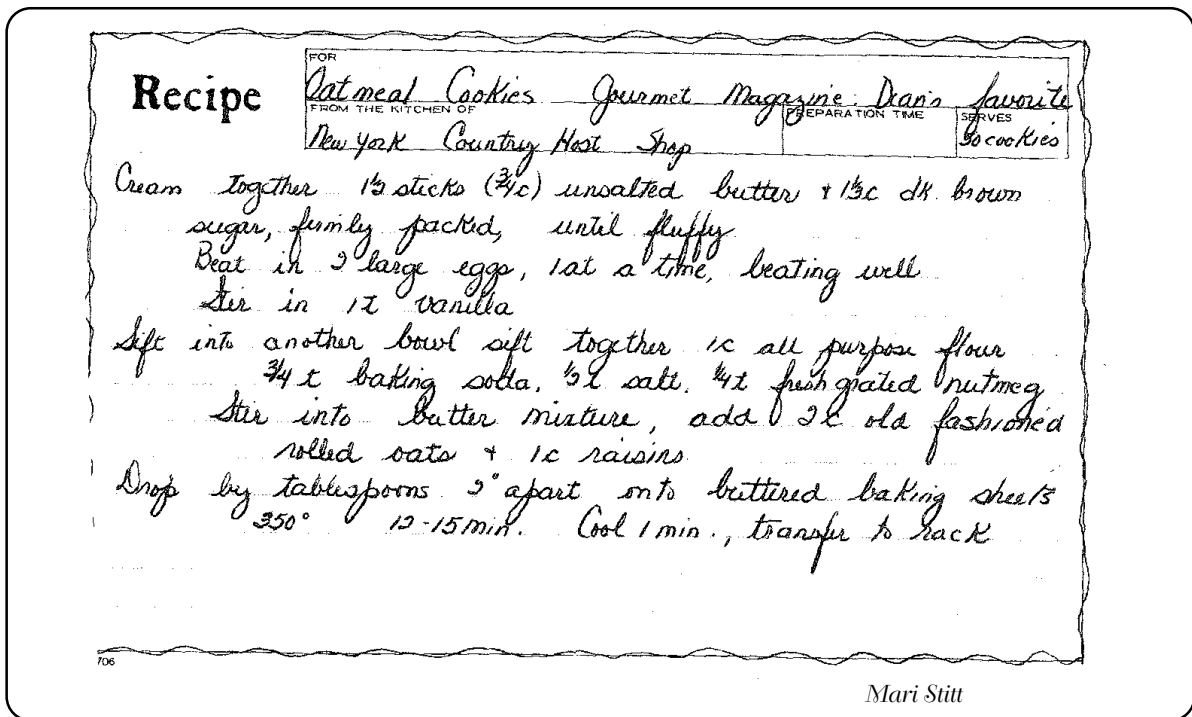 Recipe
FOR
Oatmeal Cookies Gourmet Magazine. Dean's favorite
FROM THE KITCHEN OF PREPARATION TIME SERVES
New York Country Host Shop 30 cookies
Cream together 1½ sticks (¾c) unsalted butter + 1⅓c dk brown
sugar, firmly packed, until fluffy
Beat in 2 large eggs, 1 at a time, beating well
Stir in 1t vanilla
Sift into another bowl sift together 1c all purpose flour
¾ t baking soda, ½t salt, ¼t fresh grated nutmeg
Stir into butter mixture, add 2c old fashioned
rolled oats + 1c raisins
Drop by tablespoons 2" apart onto buttered baking sheets
350° 12-15 min. Cool 1 min., transfer to rack
706
Mari Stitt